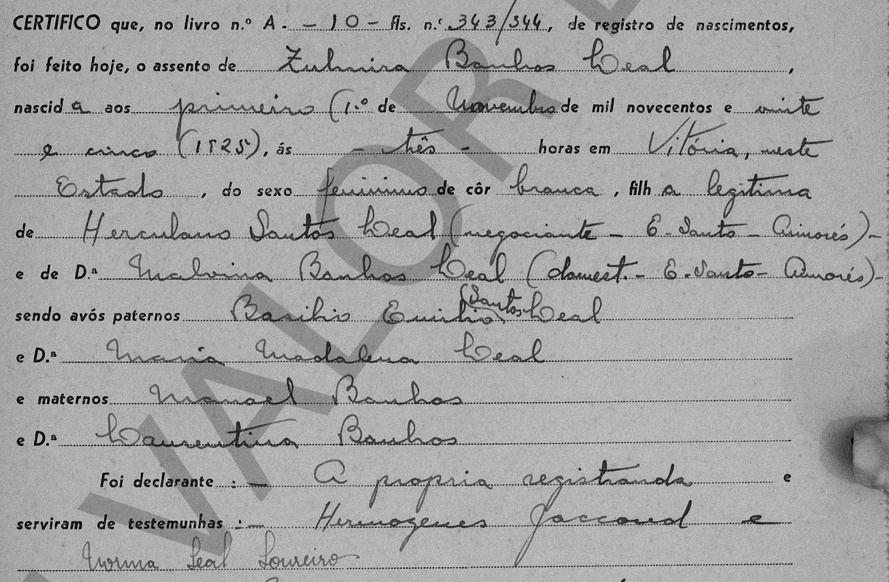 CERTIFICO que, no livro n.º A. - 10 - fls. n.º 343/344, de registro de nascimentos,
foi feito hoje, o assento de Zulmira Banhos Leal,
nascida aos primeiro (1.º de Novembro de mil novecentos e vinte
e cinco (1925), ás - três - horas em Vitória, neste
Estado, do sexo feminino de côr branca, filha legitima
de Herculano Santos Leal (negociante - E. Santo - Aimorés) -
e de D.ª Malvina Banhos Leal (domest. - E. Santo - Aimorés) -
sendo avós paternos Basilio Emilio (Santos) Leal
e D.ª Maria Madalena Leal
e maternos Manoel Banhos
e D.ª Laurentina Banhos
Foi declarante :- A propria registranda e
serviram de testemunhas :- Hermogenes Jaccoud e
Norma Leal Loureiro
VALOR